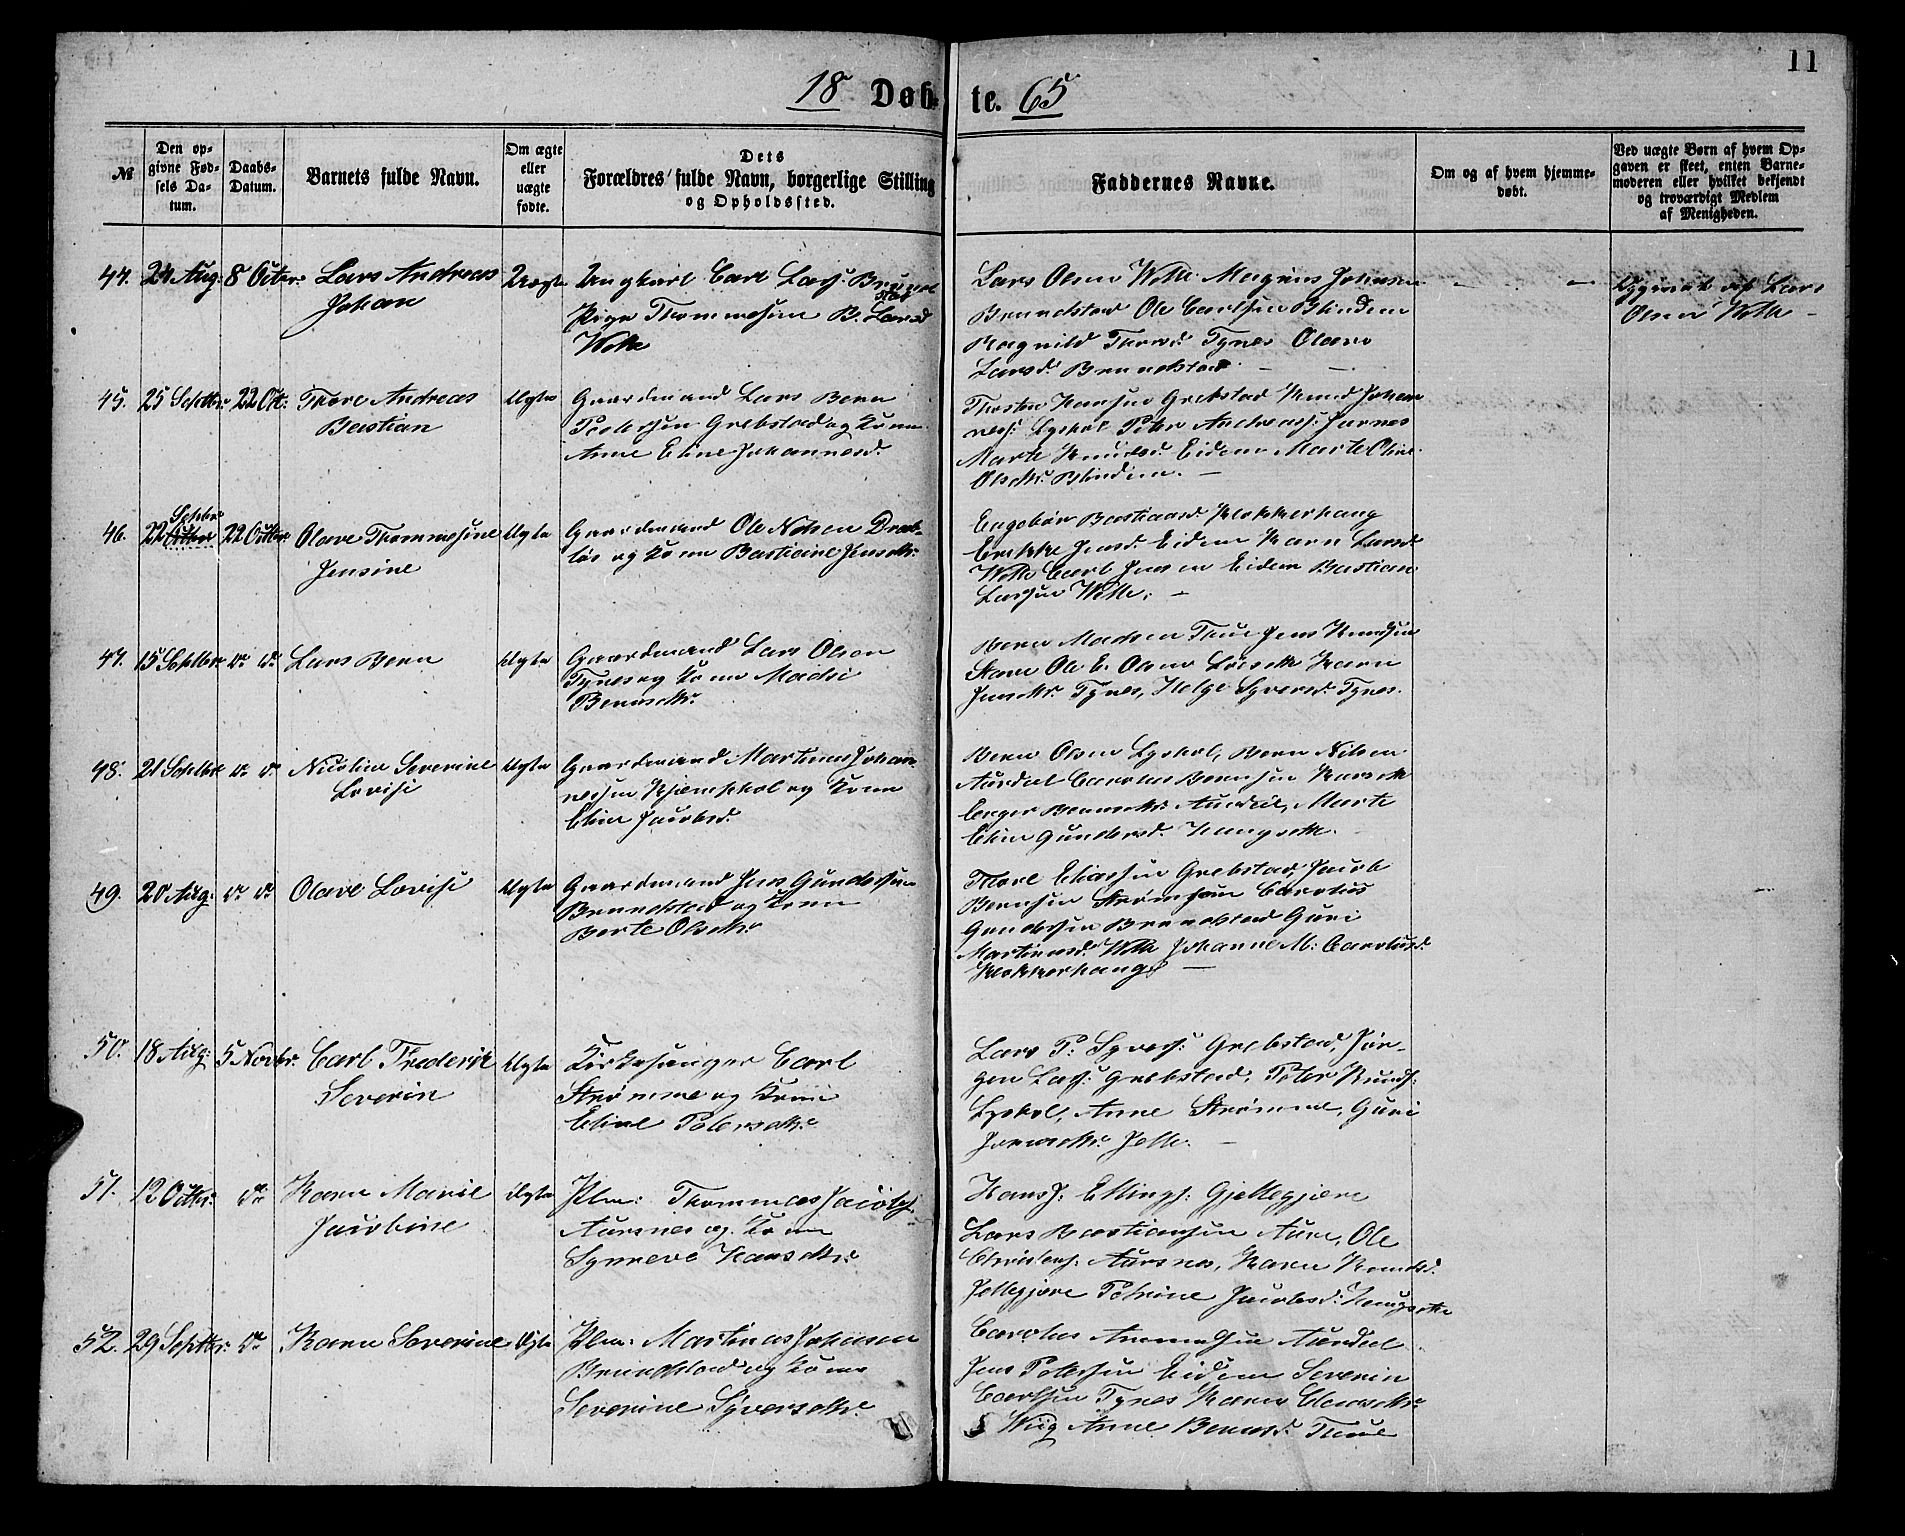 11
18 Døb- te. 65
№
Den opgivne Fødsels Datum.
Daabs-Datum.
Barnets fulde Navn.
Om ægte eller uægte fødte.
Dets Forældres fulde Navn, borgerlige Stilling og Opholdssted.
Faddernes Navne.
Om og af hvem hjemmedøbt.
Ved uægte Børn af hvem Opgaven er skeet, enten Barnemoderen eller hvilket bekjendt og troværdigt Medlem af Menigheden.
44. 24 Aug: 8 Octbr: Lars Andreas
Johan
Uægte
Ungkarl Carl Lars: Brunstad
Pige Thommesine B. Larsd
Welle
Lars Olsen Welle Magnus Johnsen
Brundstad Ole Carlsen Blindem
Ragnild Thorsd. Tynes Olave
Larsd. Brundstad. —
— —
Opgivet af Lars
Olsen Welle —
45. 25 Septbr: 22 Oct: Thore Andreas
Bastian
Ægte
Gaardmand Lars Bern
Pedersen Grebstad og Kone
Anne Eline Johannesd.
Thosten Hansen Grebstad Knud Johan-
ness: Lyshol Peter Andreass: Jarnes
Marte Knudsd. Eidem Marte Oline
Olsdtr. Blindem. —
46. 22 Septbr 22 Octbr: Olave Thommesine
Jensine
Ægte
Gaardmand Ole Nilsen Drab-
løs og Kone Bastiane Jensdtr.
Engebør Bastiansd Klokkerhaug
Erikke Jensd. Eidem Karn Larsd.
Welle Carl Jensen Eidem Bastian
Larsen Welle. —
47. 15 Septbr. do do Lars Bern
Ægte
Gaardmand Lars Olsen
Tynes og Kone Madsi
Berntsdtr.
Bern Madsen Thue Jens Knudsen
Stave Ole E. Olsen Løset Karn
Jensdtr. Tynes, Helge Syversd. Tynes.
48. 21 Septbr do do Nicoline Severine
Lovise
Ægte
Gaardmand Martinus Johan-
nessen Kjemphol og Kone
Eline Jacobsd.
Bern Olsen Lyshol, Bern Nilsen
Aurdal Carolus Bernsen Hauset
Berntsdtr. Aurdal, Marte
Eline Gundersd. Haugset.
49. 20 Aug: do do Olave Lovise
Ægte
Gaardmand Jens Gundersen
Brundstad og Kone
Berte Olsdtr.
Thore Eliassen Grebstad, Jacob
Bernsen Strømhjem Carolus
Gundersen Brundstad Guri
Martinusd. Welle Johanne M. Carolusd.
Klokkerhaug —
50. 18 Aug: 5 Novbr. Carl Frederik
Severin
Ægte
Kirkesanger Carl
Strømme og Kone
Eline Petersdtr.
Lars P: Syvers: Grebstad, Jør-
gen Lars: Grebstad, Peter Knuds:
Lyshol, Anne Strømme, Guri
Jonasdtr. Jelle. —
51. 12 Octbr: do Karn Marie
Jacobine
Ægte
Plm: Thommas Jacobs
Aursnes og Kone
Synneve Hansdtr.
Hans J: Ellings: Gjellegjære
Lars Bastiansen Aure, Ole
Christens: Aursnes, Karn Knudsd.
Jellegjære Petrine Jacobsd: Haugset
52. 29 Septbr: do Karn Severine
Ægte
Plm: Martinus Johnsen
Brundstad og Kone
Severine Syversdtr.
Carolus Ammundsen Aurdal
Jens Petersen Eidem Severin
Carlsen Tynes Karn Clausdtr.
Wiig Anne Berntsd. Thue